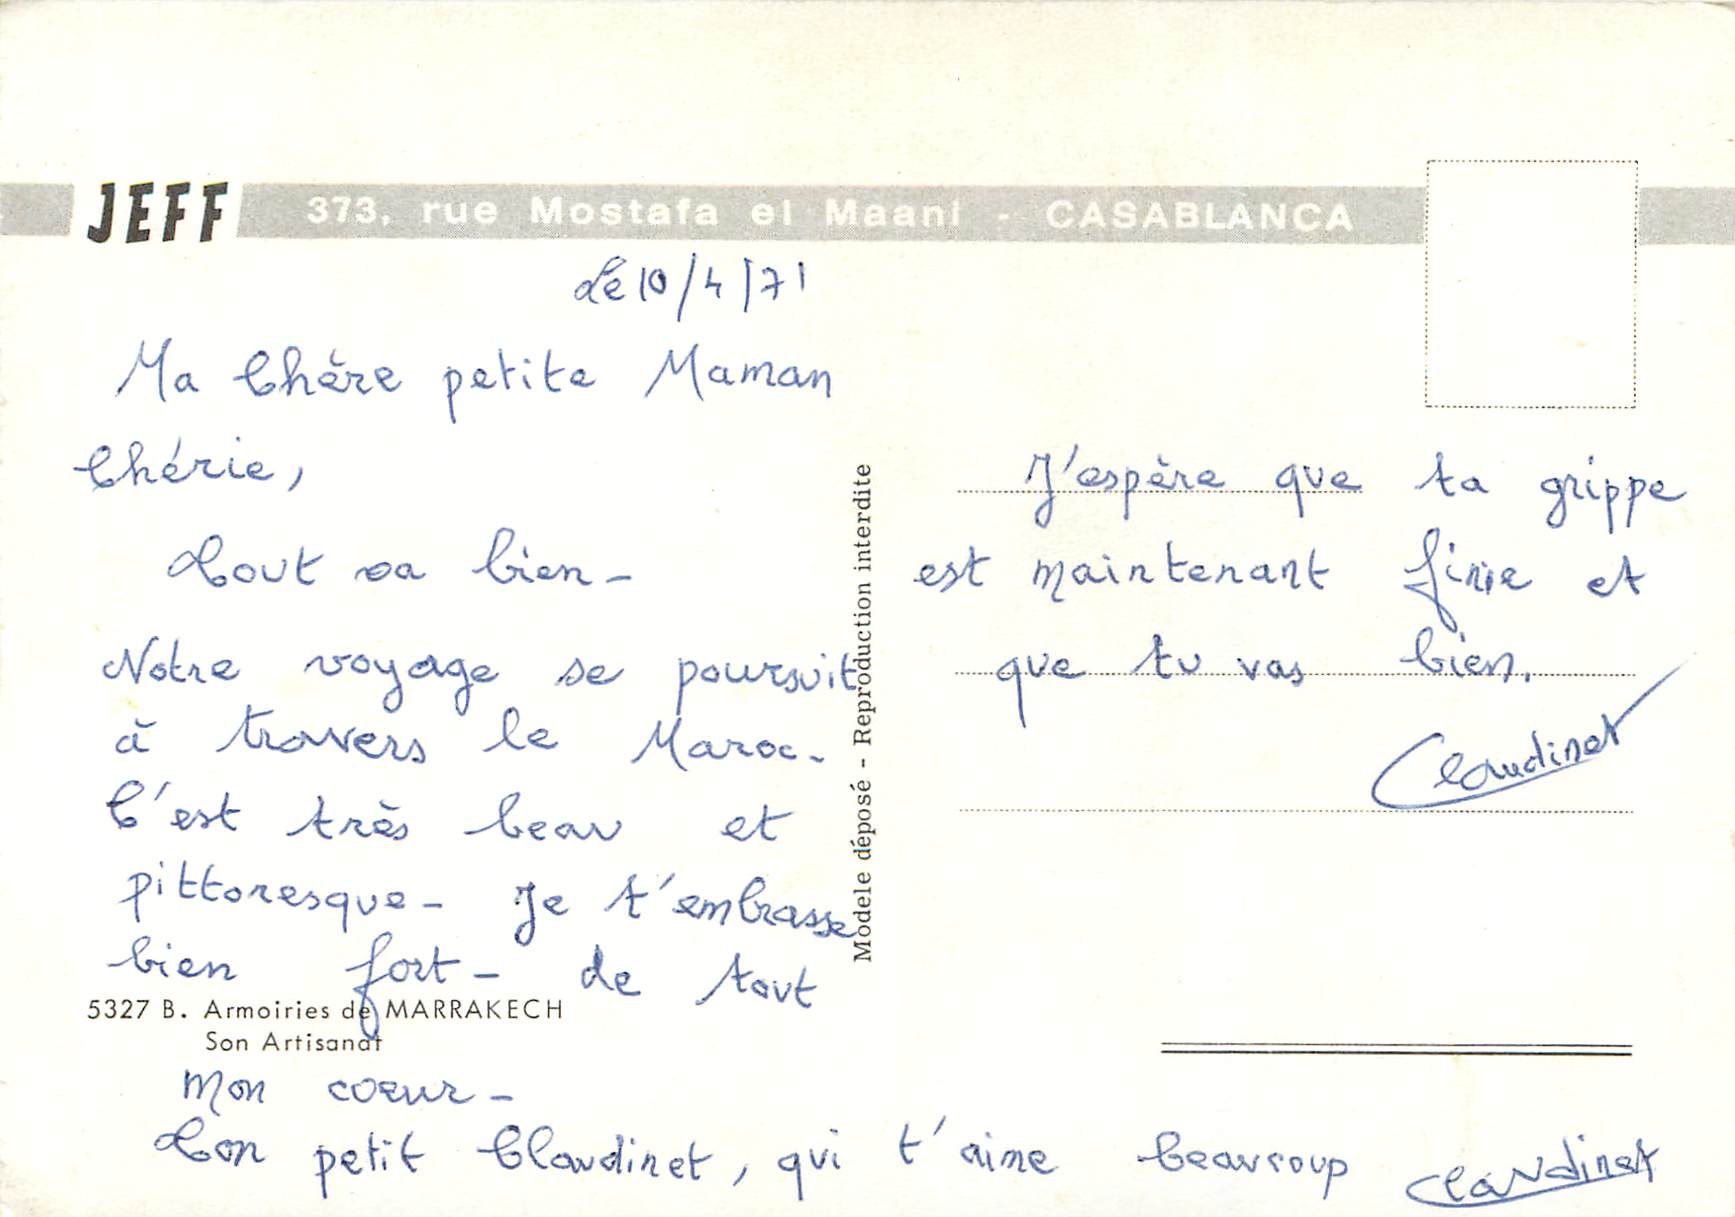 JEFF 373, rue Mostafa el Maani - CASABLANCA
Le 10/4/71
Ma Chère petite Maman
Chérie,
Tout va bien -
Notre voyage se poursuit
à travers le Maroc -
C'est très beau et
pittoresque - Je t'embrasse
bien fort - de tout
5327 B. Armoiries de MARRAKECH
Son Artisanat
mon coeur -
Ton petit Claudinet, qui t'aime beaucoup Claudinet
Modele déposé - Reproduction interdite
J'espère que ta grippe
est maintenant finie et
que tu vas bien.
Claudinet